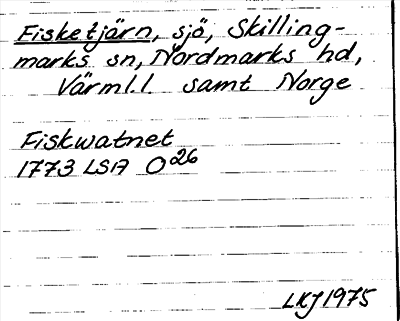 Fisketjärn, sjö, Skilling-
marks sn, Nordmarks hd,
Värml.l samt Norge
Fiskwatnet
1773 LSA O26
LKJ 1975